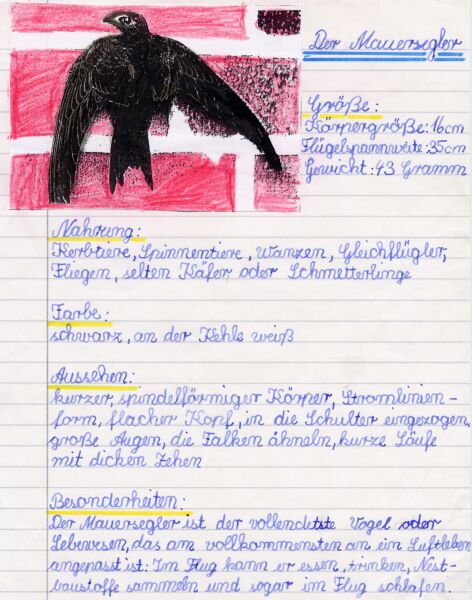 Der Mauersegler
Größe:
Körpergröße: 16cm
Flügelspannweite: 35cm
Gewicht: 43 Gramm
Nahrung:
Kerbtiere, Spinnentiere, Wanzen, Gleichflügler,
Fliegen, selten Käfer oder Schmetterlinge
Farbe:
schwarz, an der Kehle weiß
Aussehen:
kurzer, spindelförmiger Körper, Stromlinien-
form, flacher Kopf, in die Schulter eingezogen,
große Augen, die Falken ähneln, kurze Läufe
mit dicken Zehen
Besonderheiten:
Der Mauersegler ist der vollendetste Vogel oder
Lebewesen, das am vollkommensten an ein Luftleben
angepasst ist: Im Flug kann er essen, trinken, Nist-
baustoffe sammeln und sogar im Flug schlafen.